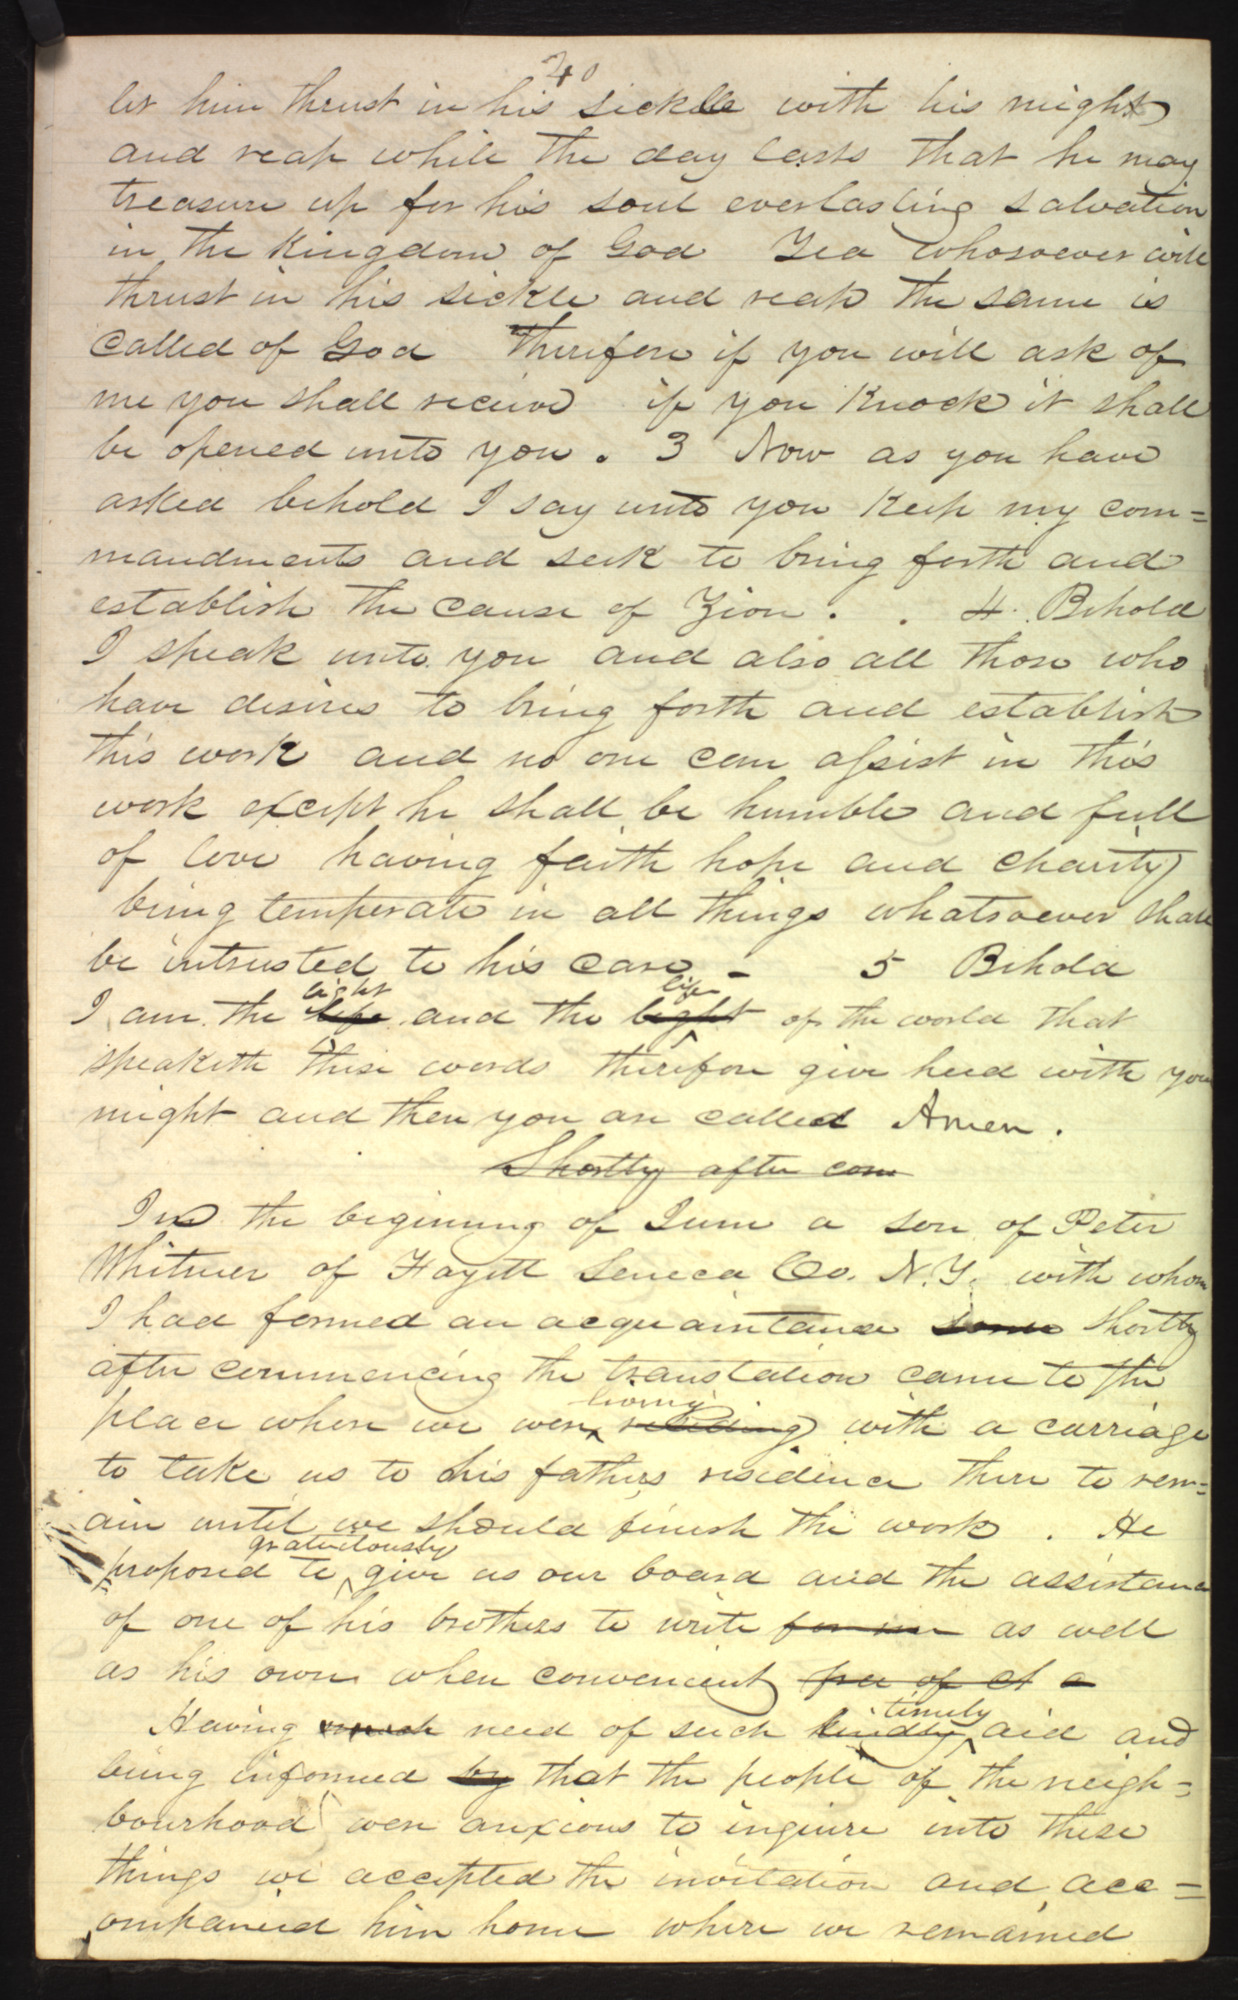 40
let him thrust in his sickle with his might
and reap while the day lasts that he may
treasure up for his soul everlasting salvation
in the Kingdom of God Yea whosoever will
thrust in his sickle and reap the same is
called of God Therefore if you will ask of
me you shall receive if you Knock it shall
be opened unto you. 3 Now as you have
asked behold I say unto you Keep my com=
mandments and seek to bring forth and
establish the cause of Zion. . 4. Behold
I speak unto you and also all those who
have desires to bring forth and establish
this work and no one can assist in this
work except he shall be humble and full
of love having faith hope and charity
being temperate in all things whatsoever shall
be intrusted to his care – 5 Behold
light life
I am the life and the light of the world that
speaketh these words therefore give heed with your
might and then you are called Amen.
Shortly after com
In the beginning of June a son of Peter
Whitmer of Fayett Seneca Co. N.Y. with whom
I had formed an acquaintance some shortly
after commencing the translation came to the
living
place where we were residing with a carriage
to take us to his fathers residence there to rem=
ain until we should finish the work. He
gratuitously
proposed to give us our board and the assistance
of one of his brothers to write for me as well
as his own when convenient free of ch a
timely
Having much need of such kindly aid and
being informed by that the people of the neigh=
bourhood were anxious to inquire into these
things we accepted the invitation and acc=
ompanied him home where we remained